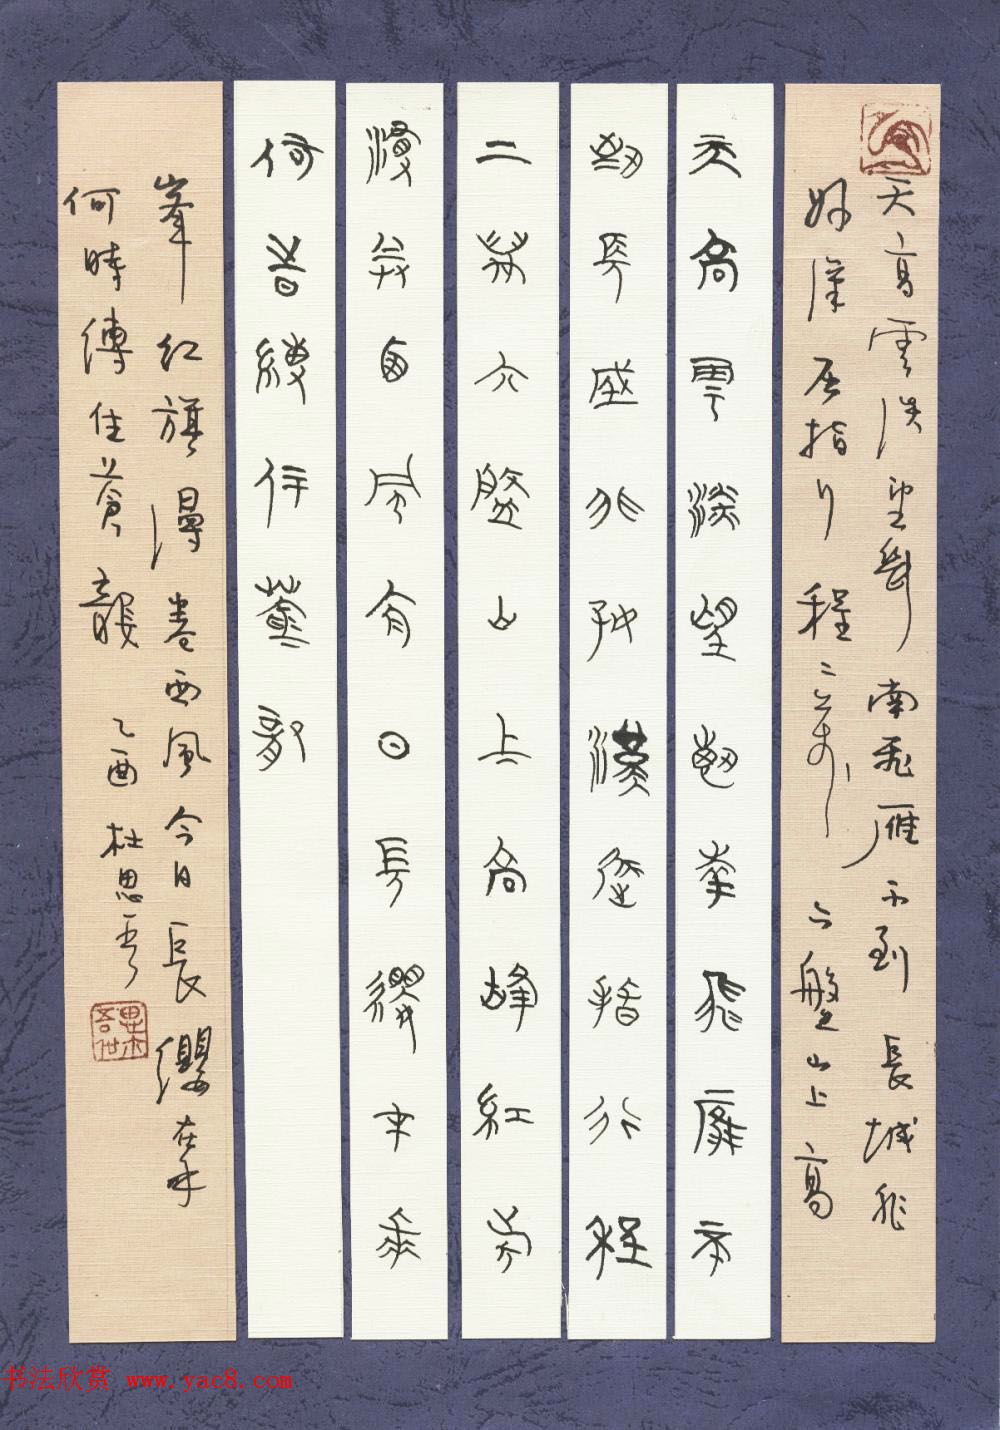 天高雲淡望斷南飛雁不到長城非
好漢屈指行程二萬六盤山上高
天高雲淡望斷南飛雁不
到長城非好漢屈指行程
二萬六盤山上高峰紅旗
漫卷西風今日長纓在手
何時縛住蒼龍
峯紅旗漫卷西風今日長纓在手
何時縛住蒼龍 乙酉 杜思
书法欣赏 www.yac8.com